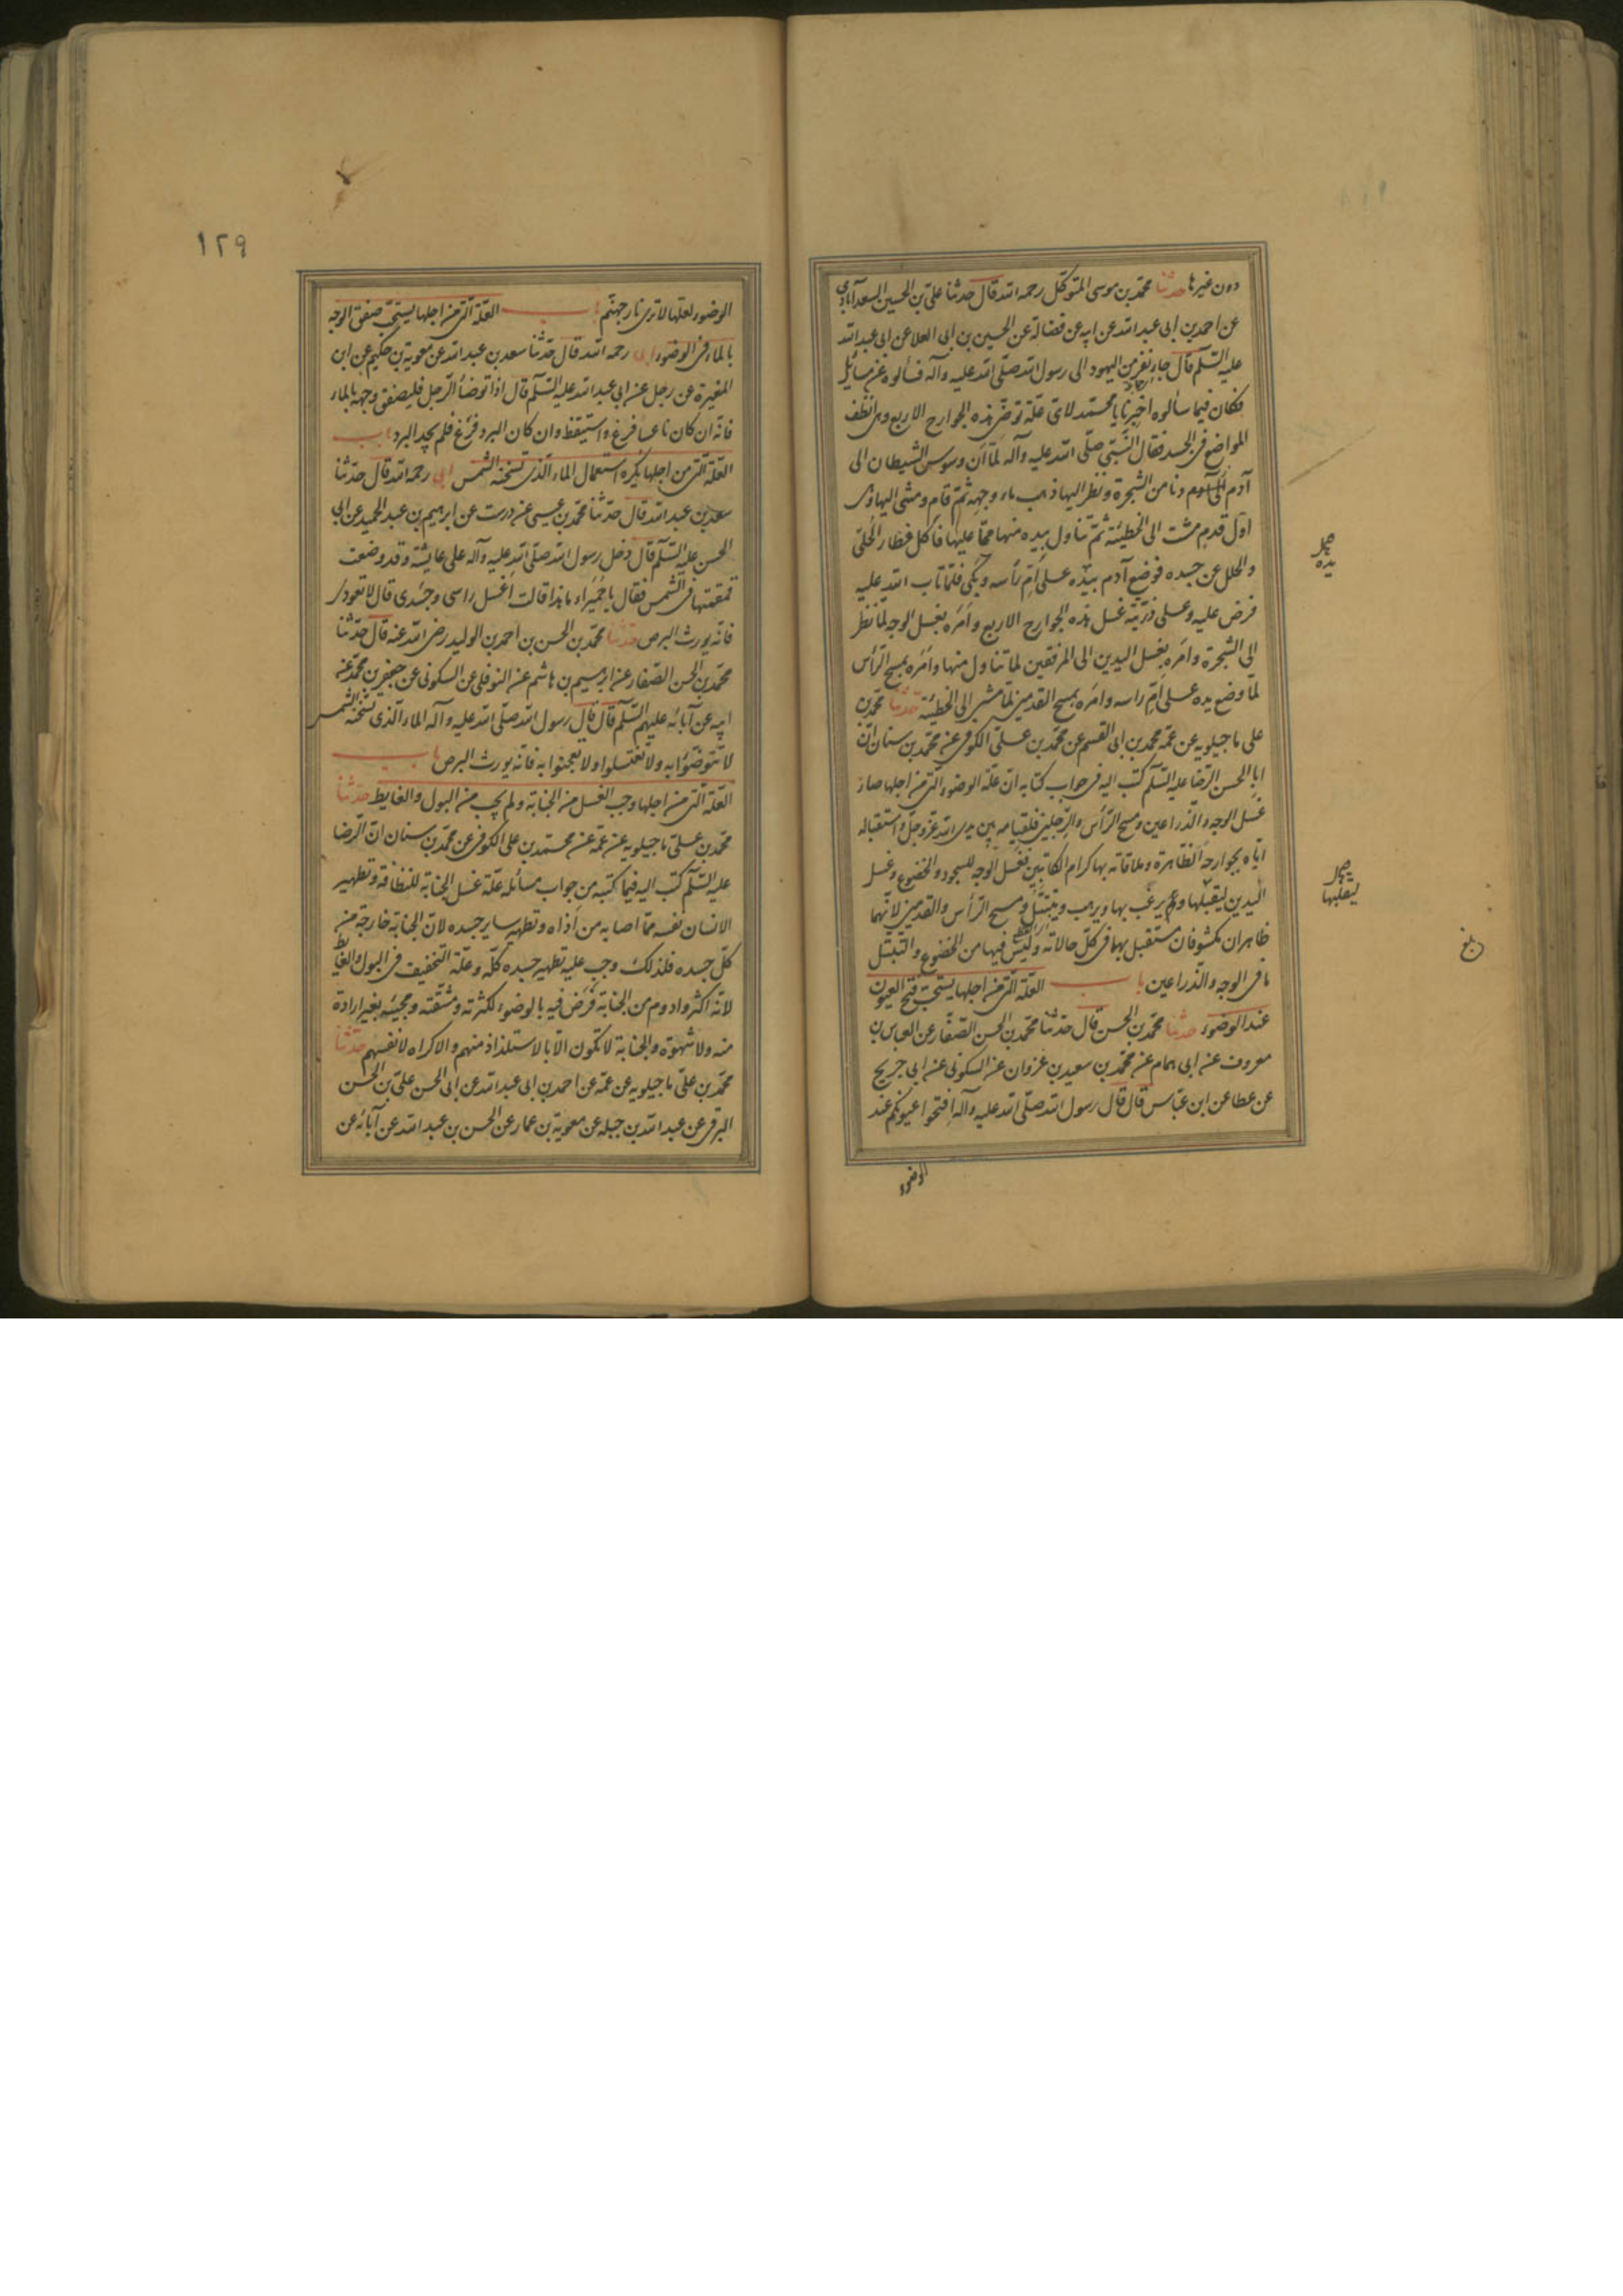 دون غيرها حدثنا محمد بن موسى المتوكل رحمه الله قال حدثنا على بن الحسين السعدآبادي
عن احمد بن ابى عبد الله عن ابيه عن فضالة عن الحسين بن ابى العلا عن ابى عبد الله
عليه السّلم قال جاء نفر من اليهود الى رسول الله صلّى الله عليه وآله فسألوه عن مسائل
فكان فيما سألوه اخبرنا يا محمد لاى علّة توضّى هذه الجوارح الاربع وهى انظف
المواضع فى الجسد فقال النّبىّ صلّى الله عليه وآله لمّا ان وسوس الشيطان الى
آدم دنا من الشجرة ونظر اليها ذهب ماء وجهه ثمّ قام ومشى اليها وهى
اوّل قدم مشت الى الخطيئة ثمّ تناول بيده منها ممّا عليها فاكل فطار الحلىّ
والحلل عن جسده فوضع آدم يده على امّ رأسه وبكى فلمّا تاب الله عليه
فرض عليه وعلى ذرّيّته غسل هذه الجوارح الاربع وامَره بغسل الوجه لمّا نظر
الى الشجرة وامَره بغسل اليدين الى المرفقين لما تناول منها وامَره بمسح الرّأس
لما وضع يده على امّ راسه وامَره بمسح القدمين لمّا مشى الى الخطيئة حدثنا محمد بن
على ماجيلويه عن عمّه محمد بن ابى القسم عن محمد بن علىّ الكوفى عن محمد بن سنان انّ
ابا الحسن الرّضا عليه السّلم كتب اليه فى جواب كتابه انّ علّة الوضوء الّتى من اجلها صار
غسل الوجه والذّراعين ومسح الرّأس والرّجلين فلقيامه بين يدى الله عزّ وجلّ واستقباله
ايّاه بجوارحه الظاهرة وملاقاته بها كرام الكاتبين فغسل الوجه للسجود والخضوع وغسل
اليدين ليقبلها ويرغب بها ويرهب ويتبتّل ومسح الرّأس والقدمين لانّهما
ظاهران مكشوفان مستقبل بهما فى كلّ حالاته وليس فيهما من الخضوع والتبتّل
ما فى الوجه والذّراعين باب العلّة الّتى من اجلها يستحبّ فتح العيون
عند الوضوء حدثنا محمد بن الحسن قال حدثنا محمد بن الحسن الصفّار عن العباس بن
معروف عن ابى همام عن محمد بن سعيد بن غزوان عن السكونى عن ابى جريج
عن عطا عن ابن عبّاس قال قال رسول الله صلّى الله عليه وآله افتحوا عيونكم عند
الوضوء
يده
ليقلبها
بلغ
١٢٩
الوضوء لعلّها لا ترى نار جهنّم باب العلّة الّتى من اجلها يستحبّ صفق الوجه
بالماء فى الوضوء ابى رحمه الله قال حدّثنا سعد بن عبد الله عن معوية بن حكيم عن ابن
المغيرة عن رجل عن ابى عبد الله عليه السّلم قال اذا توضأ الرّجل فليصفق وجهه بالماء
فانّه ان كان ناعسا فزع واستيقظ وان كان البرد فزع فلم يجد البرد باب
العلّة الّتى من اجلها يكره استعمال الماء الّذى تسخنه الشمس ابى رحمه الله قال حدّثنا
سعد بن عبد الله قال حدّثنا محمد بن عيسى عن درست عن ابرهيم بن عبد الحميد عن ابى
الحسن عليه السّلم قال دخل رسول الله صلّى الله عليه وآله على عايشة وقد وضعت
قمقمتها فى الشّمس فقال يا حميراء ما هذا قالت اغسل راسى وجسدى قال لا تعودى
فانّه يورث البرص حدّثنا محمد بن الحسن بن احمد بن الوليد رضى الله عنه قال حدّثنا
محمد بن الحسن الصفّار عن ابرهيم بن هاشم عن النوفلى عن السكونى عن جعفر بن محمد عن
ابيه عن آبائه عليهم السّلم قال قال رسول الله صلّى الله عليه وآله الماء الّذى تسخنه الشمس
لا تتوضّؤا به ولا تغتسلوا ولا تعجنوا به فانّه يورث البرص باب
العلّة الّتى من اجلها وجب الغسل من الجنابة ولم يجب من البول والغايط حدّثنا
محمد بن علىّ ماجيلويه عن عمّه عن محمد بن على الكوفى عن محمد بن سنان انّ الرّضا
عليه السّلم كتب اليه فيما كتب من جواب مسائله علّة غسل الجنابة للنظافة وتطهير
الانسان نفسه ممّا اصابه من اذاه وتطهير ساير جسده لانّ الجنابة خارجة من
كلّ جسده فلذلك وجب عليه تطهير جسده كلّه وعلّة التخفيف فى البول والغايط
لانّه اكثر وادوم من الجنابة فرض فيه بالوضوء لكثرته ومشقّته ومجيئه بغير ارادة
منه ولا شهوة والجنابة لا تكون الا بالاستلذاذ منهم والاكراه لانفسهم حدّثنا
محمد بن علىّ ماجيلويه عن عمّه عن احمد بن ابى عبد الله عن ابى الحسن علىّ بن الحسن
البرقى عن عبد الله بن جبله عن معوية بن عمار عن الحسن بن عبد الله عن آبائه عن